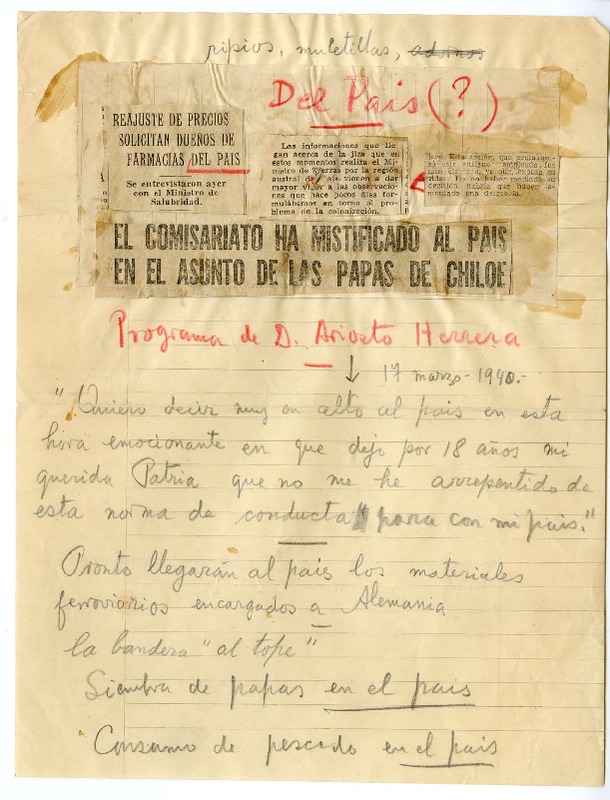 ripios, muletillas, adornos
Del Pais (?)
REAJUSTE DE PRECIOS
SOLICITAN DUEÑOS DE
FARMACIAS DEL PAIS
Se entrevistaron ayer
con el Ministro de
Salubridad.
Las informaciones que lle-
gan acerca de la jira que en
estos momentos realiza el Mi-
nistro de Tierras por la región
austral del país vienen a dar
mayor vigor a las observacio-
nes que hace pocos días for-
mulábamos en torno al pro-
blema de la colonización.
EL COMISARIATO HA MISTIFICADO AL PAIS
EN EL ASUNTO DE LAS PAPAS DE CHILOE
Programa de D. Ariosto Herrera
17 marzo-1940.-
"Quiero decir muy en alto al pais en esta
hora emocionante en que dejo por 18 años mi
querida Patria que no me he arrepentido de
esta norma de conducta para con mi pais."
Pronto llegarán al país los materiales
ferroviarios encargados a Alemania
la bandera "al tope"
Siembra de papas en el pais
Consumo de pescado en el pais